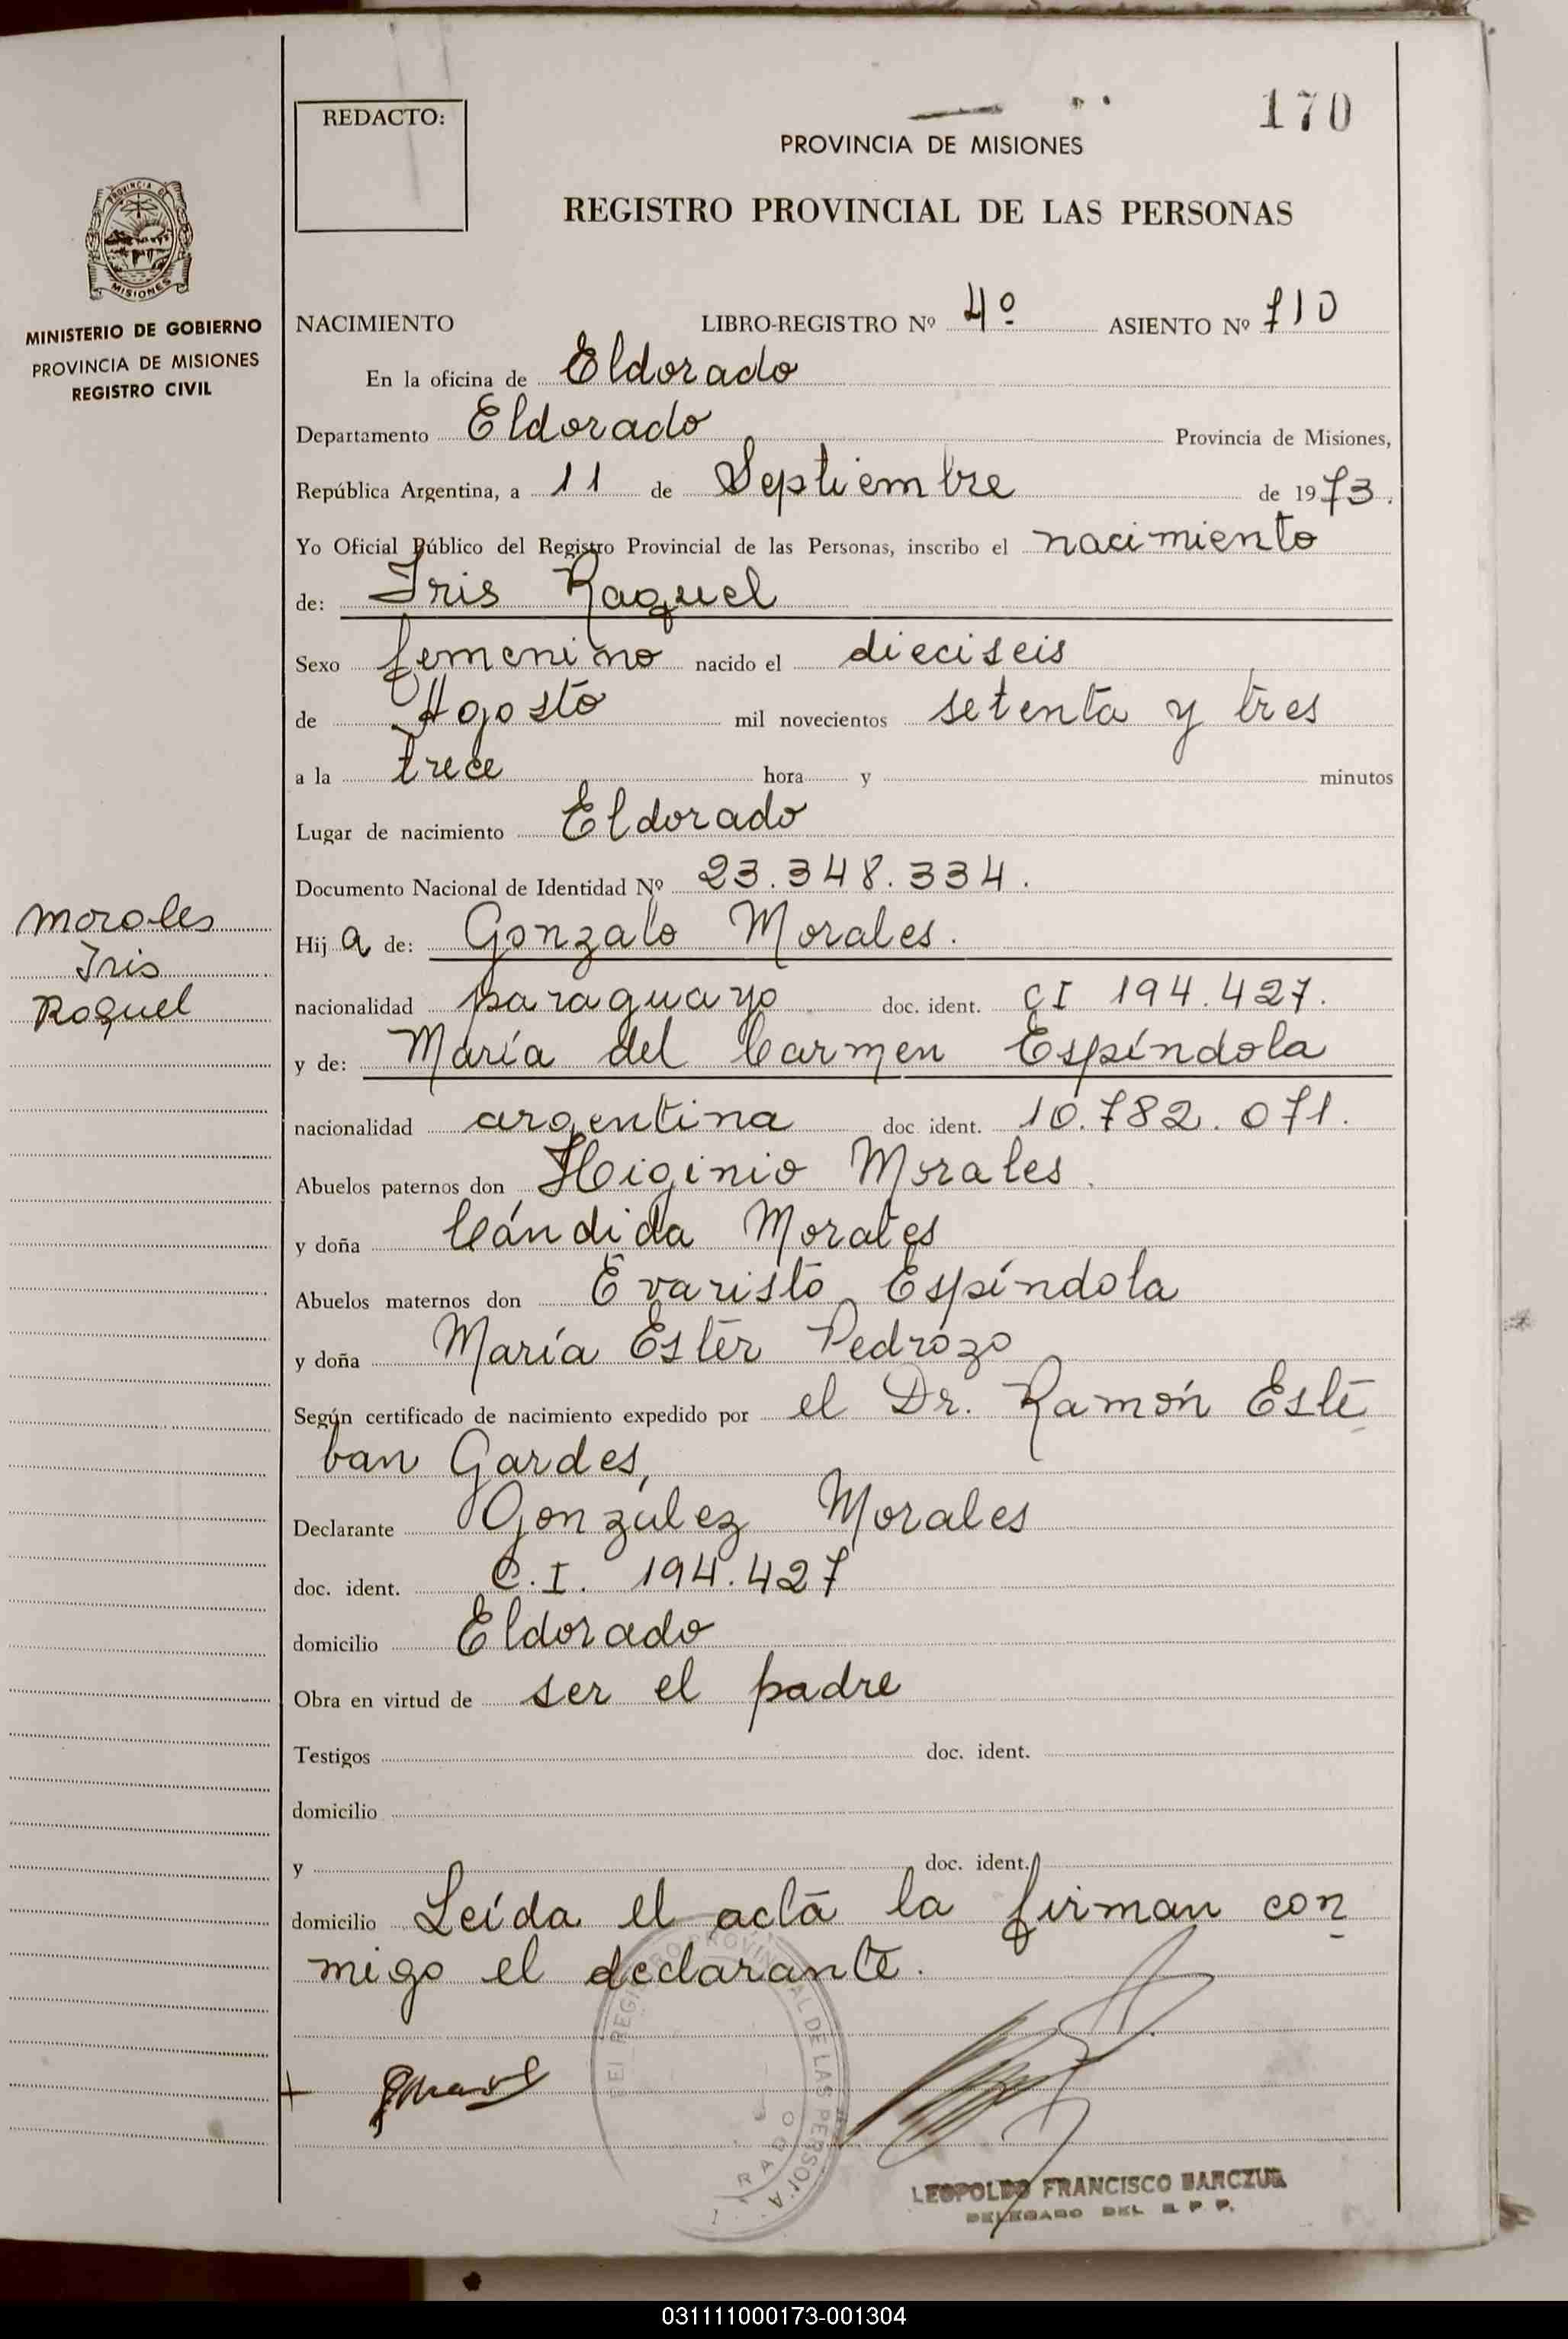 170
REDACTO:
PROVINCIA DE MISIONES
REGISTRO PROVINCIAL DE LAS PERSONAS
PROVINCIA DE
MISIONES
MINISTERIO DE GOBIERNO
PROVINCIA DE MISIONES
REGISTRO CIVIL
NACIMIENTO LIBRO-REGISTRO Nº 4º ASIENTO Nº 710
En la oficina de Eldorado
Departamento Eldorado Provincia de Misiones,
República Argentina, a 11 de Septiembre de 1973.
Yo Oficial Público del Registro Provincial de las Personas, inscribo el nacimiento
de: Iris Raquel
Sexo femenino nacido el dieciseis
de Agosto mil novecientos setenta y tres
a la trece hora y minutos
Lugar de nacimiento Eldorado
Documento Nacional de Identidad Nº 23.348.334.
Morales
Iris
Raquel
Hij a de: Gonzalo Morales.
nacionalidad paraguayo doc. ident. CI 194.427.
y de: María del Carmen Espíndola
nacionalidad argentina doc. ident. 10.782.071.
Abuelos paternos don Higinio Morales.
y doña Cándida Morales
Abuelos maternos don Evaristo Espíndola
y doña María Ester Pedrozo
Según certificado de nacimiento expedido por el Dr. Ramón Este
ban Gardes,
Declarante González Morales
doc. ident. C.I. 194.427
domicilio Eldorado
Obra en virtud de ser el padre
Testigos doc. ident.
domicilio
y doc. ident.
domicilio Leída el acta la firman con
migo el declarante.
REGISTRO PROVINCIAL DE LAS PERSONAS
LEOPOLDO FRANCISCO BARCZUK
DELEGADO DEL R. P. P.
031111000173-001304